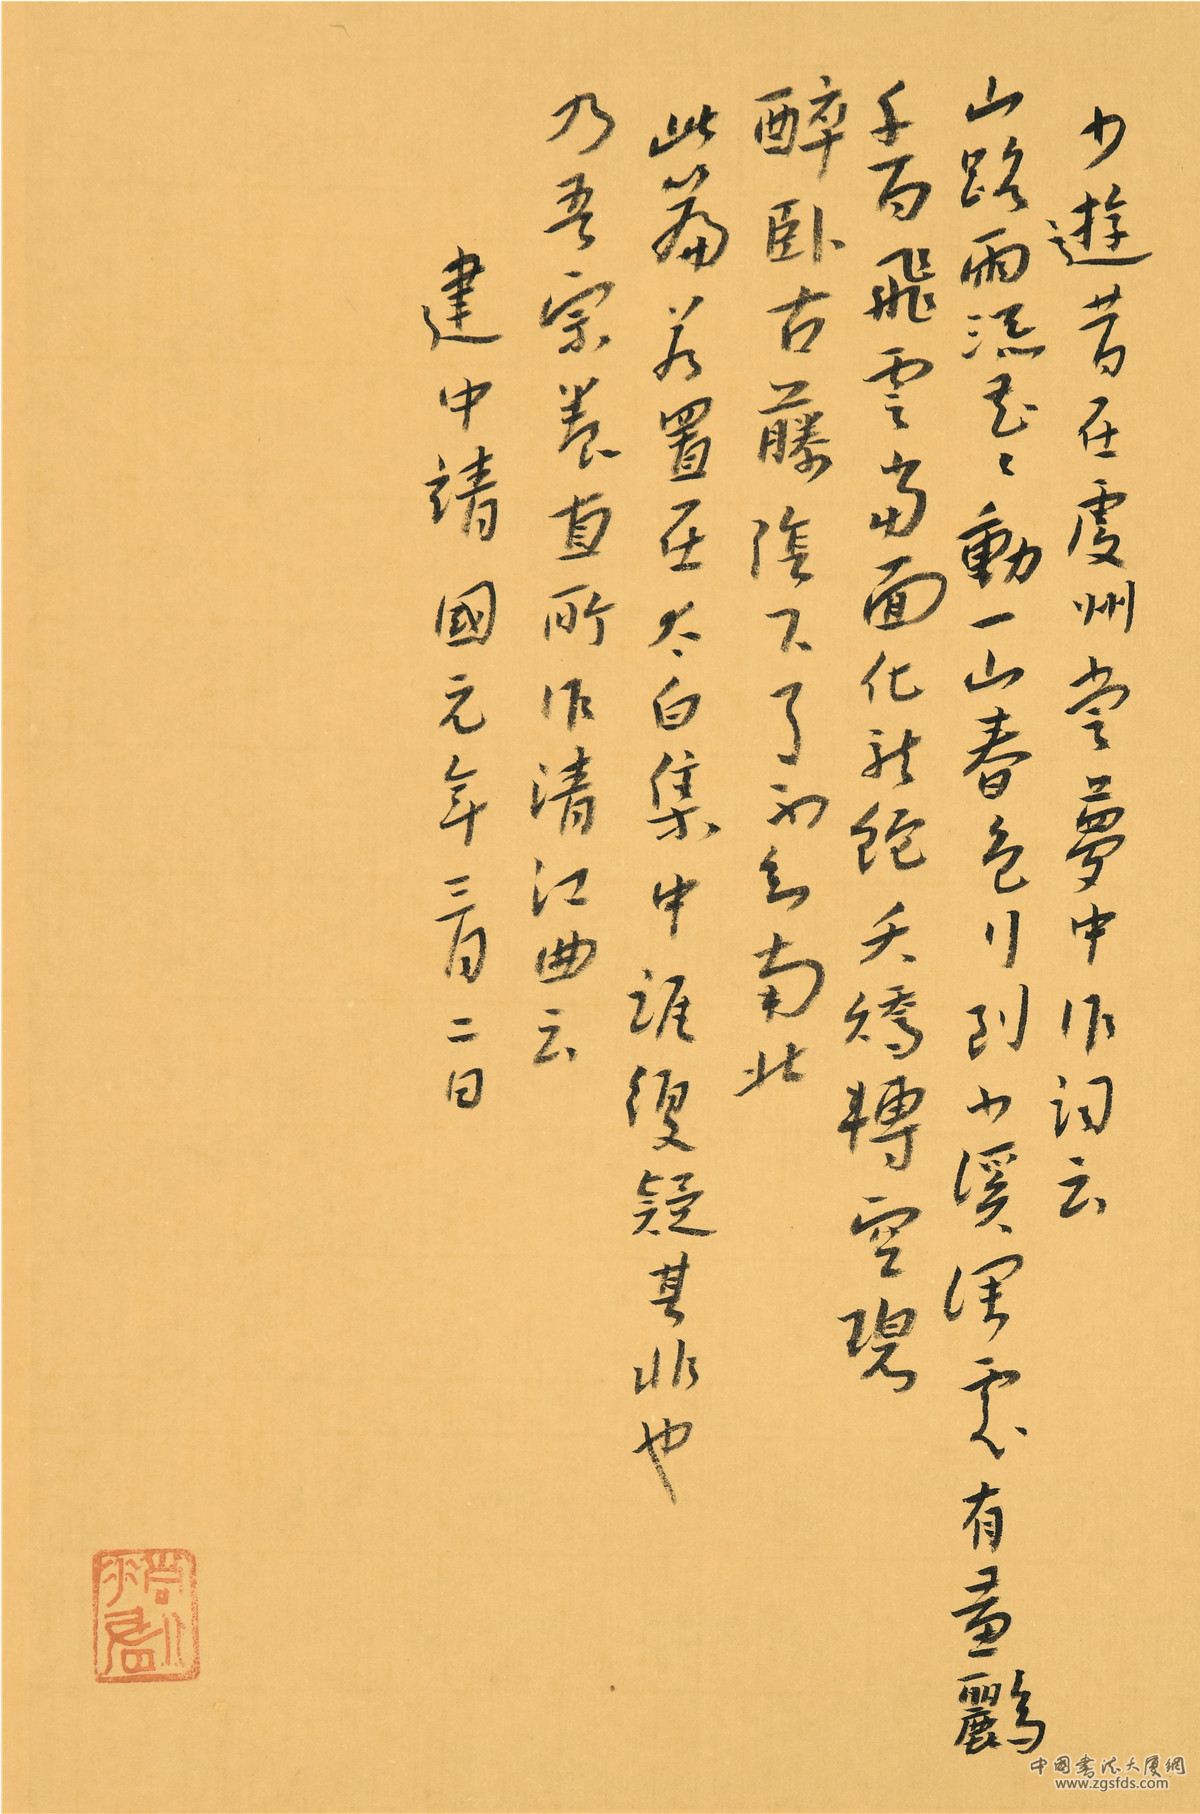 少遊昔在虔州嘗夢中作詞云
山路雨添花〻動一山春色行到小溪深處有黃鸝
千百飛雲當面化龍蛇夭矯轉空碧
醉臥古藤陰下了不知南北
此篇若置在太白集中誰復疑其非也
乃吾宗養直所作清江曲云
建中靖國元年三月二日
中国書法大厦網
www.zgsfds.com